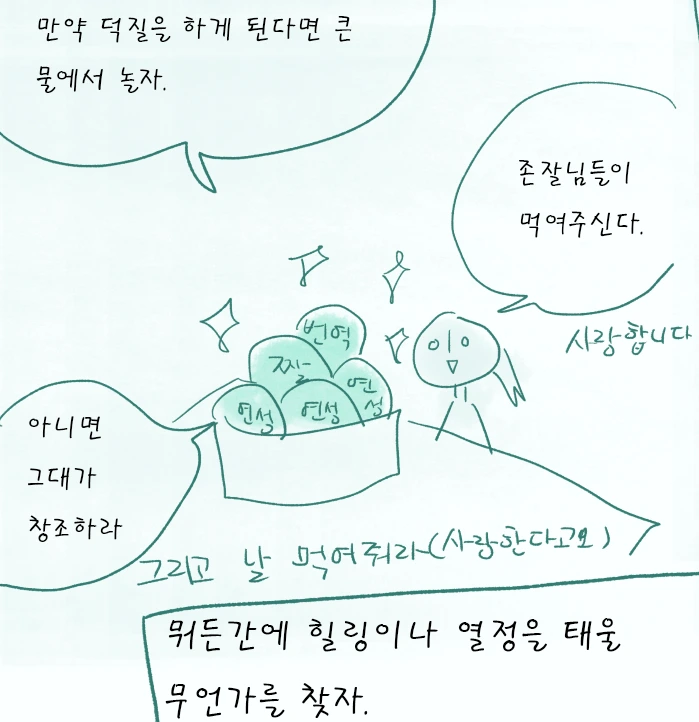 만약 덕질을 하게 된다면 큰
물에서 놀자.
존잘님들이
먹여주신다.
사랑합니다
번역
찜
연성
연성
연
성
아니면
그대가
창조하라
그리고 날 먹여줘라(사랑한다고요)
뭐든간에 힐링이나 열정을 태울
무언가를 찾자.